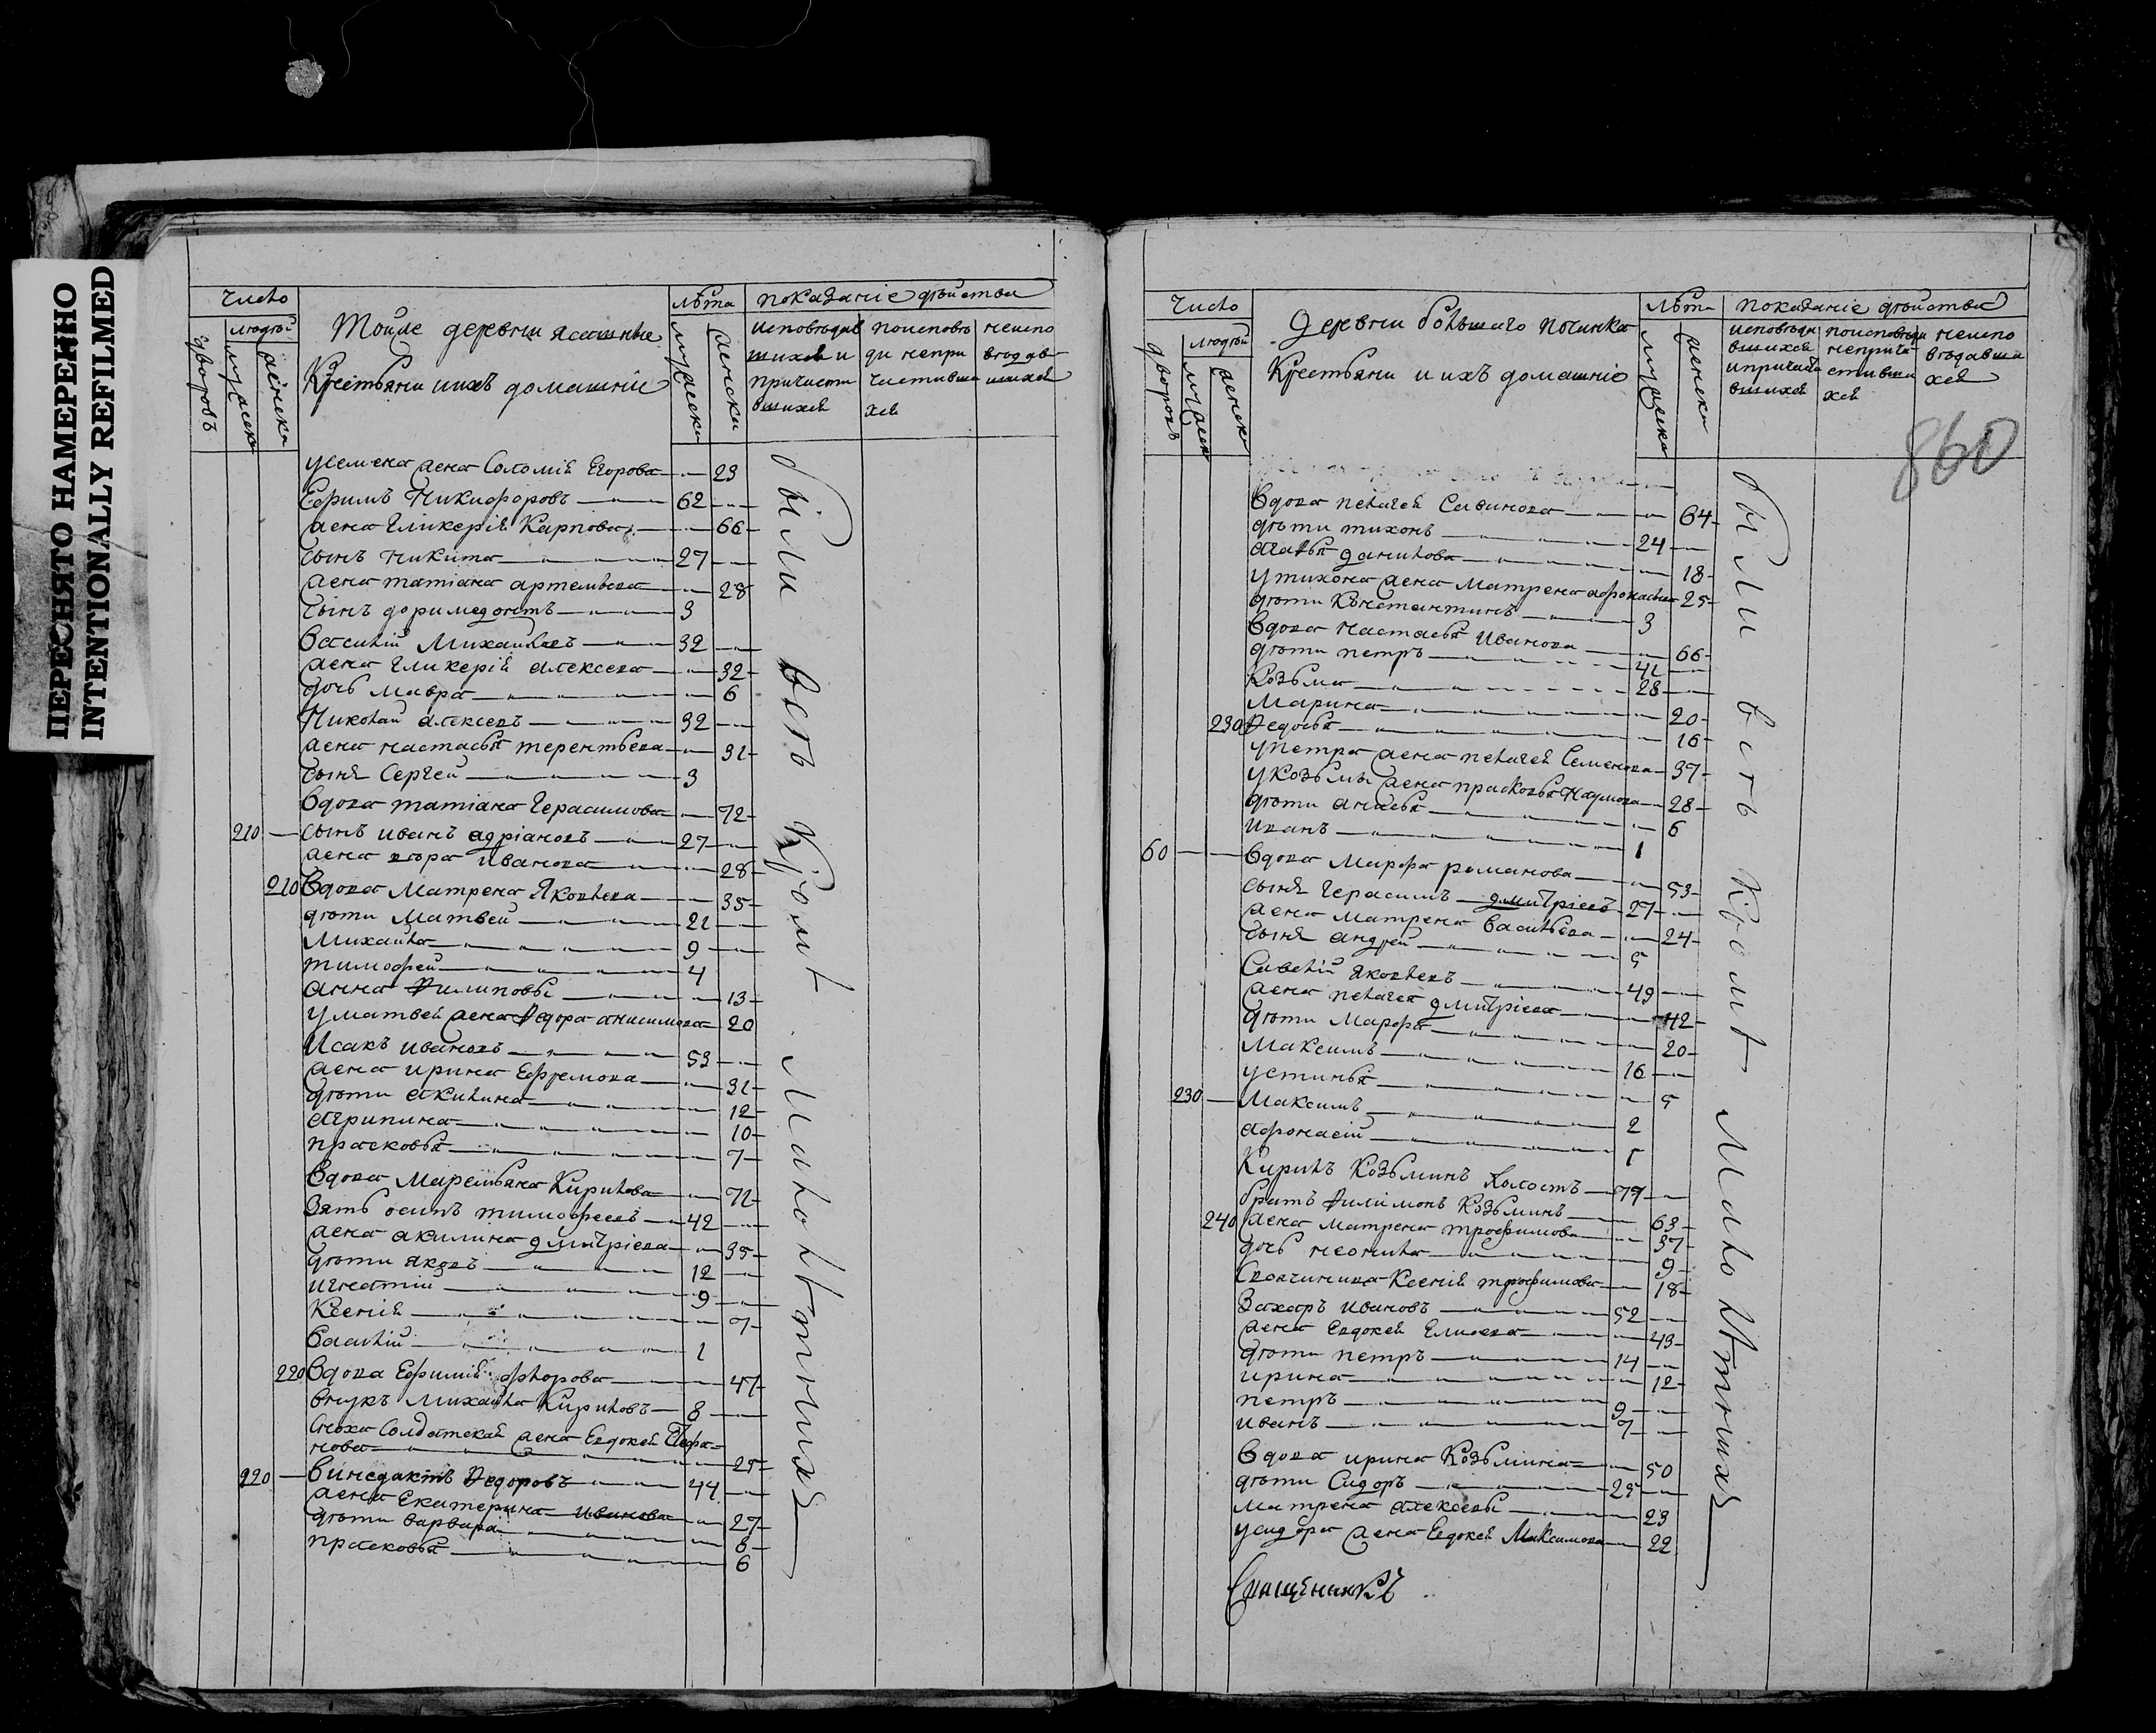 ПЕРЕСНЯТО НАМЕРЕННО
INTENTIONALLY REFILMED
число
дворовъ
людѣй
мужеска
женска
Тоиже деревни ясашные
Крестьяни ихъ домашніе
лѣта
мужеска
женска
показаніе дѣиства
исповѣдав
шихся и
причасти
вшихся
поисповѣ
ди непри
частивши
хся
неиспо
вѣдав
шихся
усемена жена Соломія Егорова 23
Ефимъ Никифоровъ 62
жена Гликерія Карпова 66
сынъ никита 27
жена татіана артемьева 28
сынъ доримедонтъ 3
Василій Михаиловъ 32
жена Гликерія алексева 32
дочь мавра 6
Николаи алексевъ 32
жена настасья терентьева 31
сынъ Сергеи 3
вдова татіана Герасимова 72
210 сынъ иванъ адріановъ 27
жена ивановa 28
210 вдова Матрена Яковлева 35
дѣти Матвеи 21
Михаила 9
тимофеи 4
анна Филиповы 13
уматвея жена Федора анисимова 20
Исакъ ивановъ 53
жена ирина Ефремова 31
дѣти акилина 12
агрипина 10
прасковья 7
вдова Маремьяна Кирилова 71
зять осипъ тимофеевъ 42
жена акилина дмитріева 35
дѣти яковъ 12
игнатіи 9
Ксенія 7
василіи 1
220 вдова Ефимія флорова 47
внукъ михаила Кириловъ 8
сноха Солдатская жена Евдокея Стефа=
нова 25
220 винедактъ Федоровъ 44
жена Екатерина иванова 27
дѣти варвара 8
прасковья 6
были всѣ Кромѣ малолѣтнихъ
число
дворовъ
людѣи
мужеск
женск
Деревни большаго починка
Крестьяни и ихъ домашніе
лѣта
мужеска
женска
показаніе дѣиства
исповѣда
вшихся
ипричаст
вшихся
поисповѣди
неприча
стивши
хся
неиспо
вѣдавши
хся
860
вдова пелагея Савинова 64
дѣти тихонъ 24
агафья данилова 18
утихона жена матрена афонасьева 25
дѣти Констентинъ 3
вдова настасья Иванова 66
дѣти петръ 41
Козьма 28
Марина 20
230 Федосья 16
упетра жена пелагея Семенова 37
укозьмы жена прасковья Наумова 28
дѣти анисья 6
иванъ 1
60 вдова Марфа романова 53
сынъ Герасимъ дмитріевъ 27
жена матрена васильева 24
сынъ андреи 5
Савелій яковлевъ 49
жена пелагея дмитріева 42
дѣти Марфа 20
Максимъ 16
устинья 5
230 Максимъ 2
афонасіи 1
Кирилъ Козьминъ холостъ 77
братъ Филимонъ Козьминъ 63
240 жена матрена трофимова 37
дочь неонила 9
Ксенія трофимова 18
Захаръ ивановъ 52
жена Евдокея Елисеева 43
дѣти петръ 14
ирина 12
петръ 9
иванъ 7
вдова ирина Козьмина 50
дѣти Сидоръ 25
матрена алексеевы 23
усидора жена Евдокея Максимова 22
были всѣ Кромѣ малолѣтнихъ
Священникъ